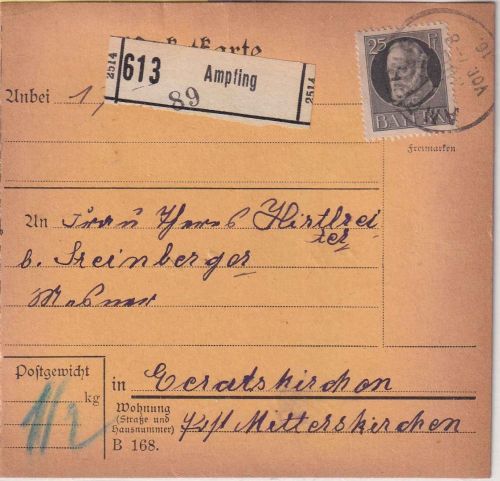 2514
613
Ampfing
2514
89
25
BAYERN
16. NOV.
Anbei 1
Freimarken
An Frau Theres Hirtlrei
ter
b. Steinberger
Mesner
Postgewicht
kg
in Geratskirchen
Wohnung
(Straße und
Hausnummer)
Pst Mitterskirchen
B 168.